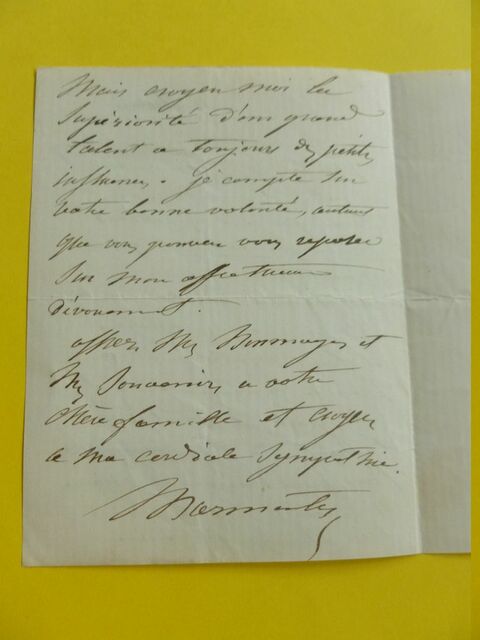 Mais croyez moi la
Supériorité d'un grand
talent a toujours des petites
influences. je compte sur
votre bonne volonté, autant
que vous pouvez vous reposer
sur mon affectueux
dévouement.
offrez mes hommages et
mes souvenirs a votre
chère famille et croyez
a ma cordiale sympathie.
Marmontel